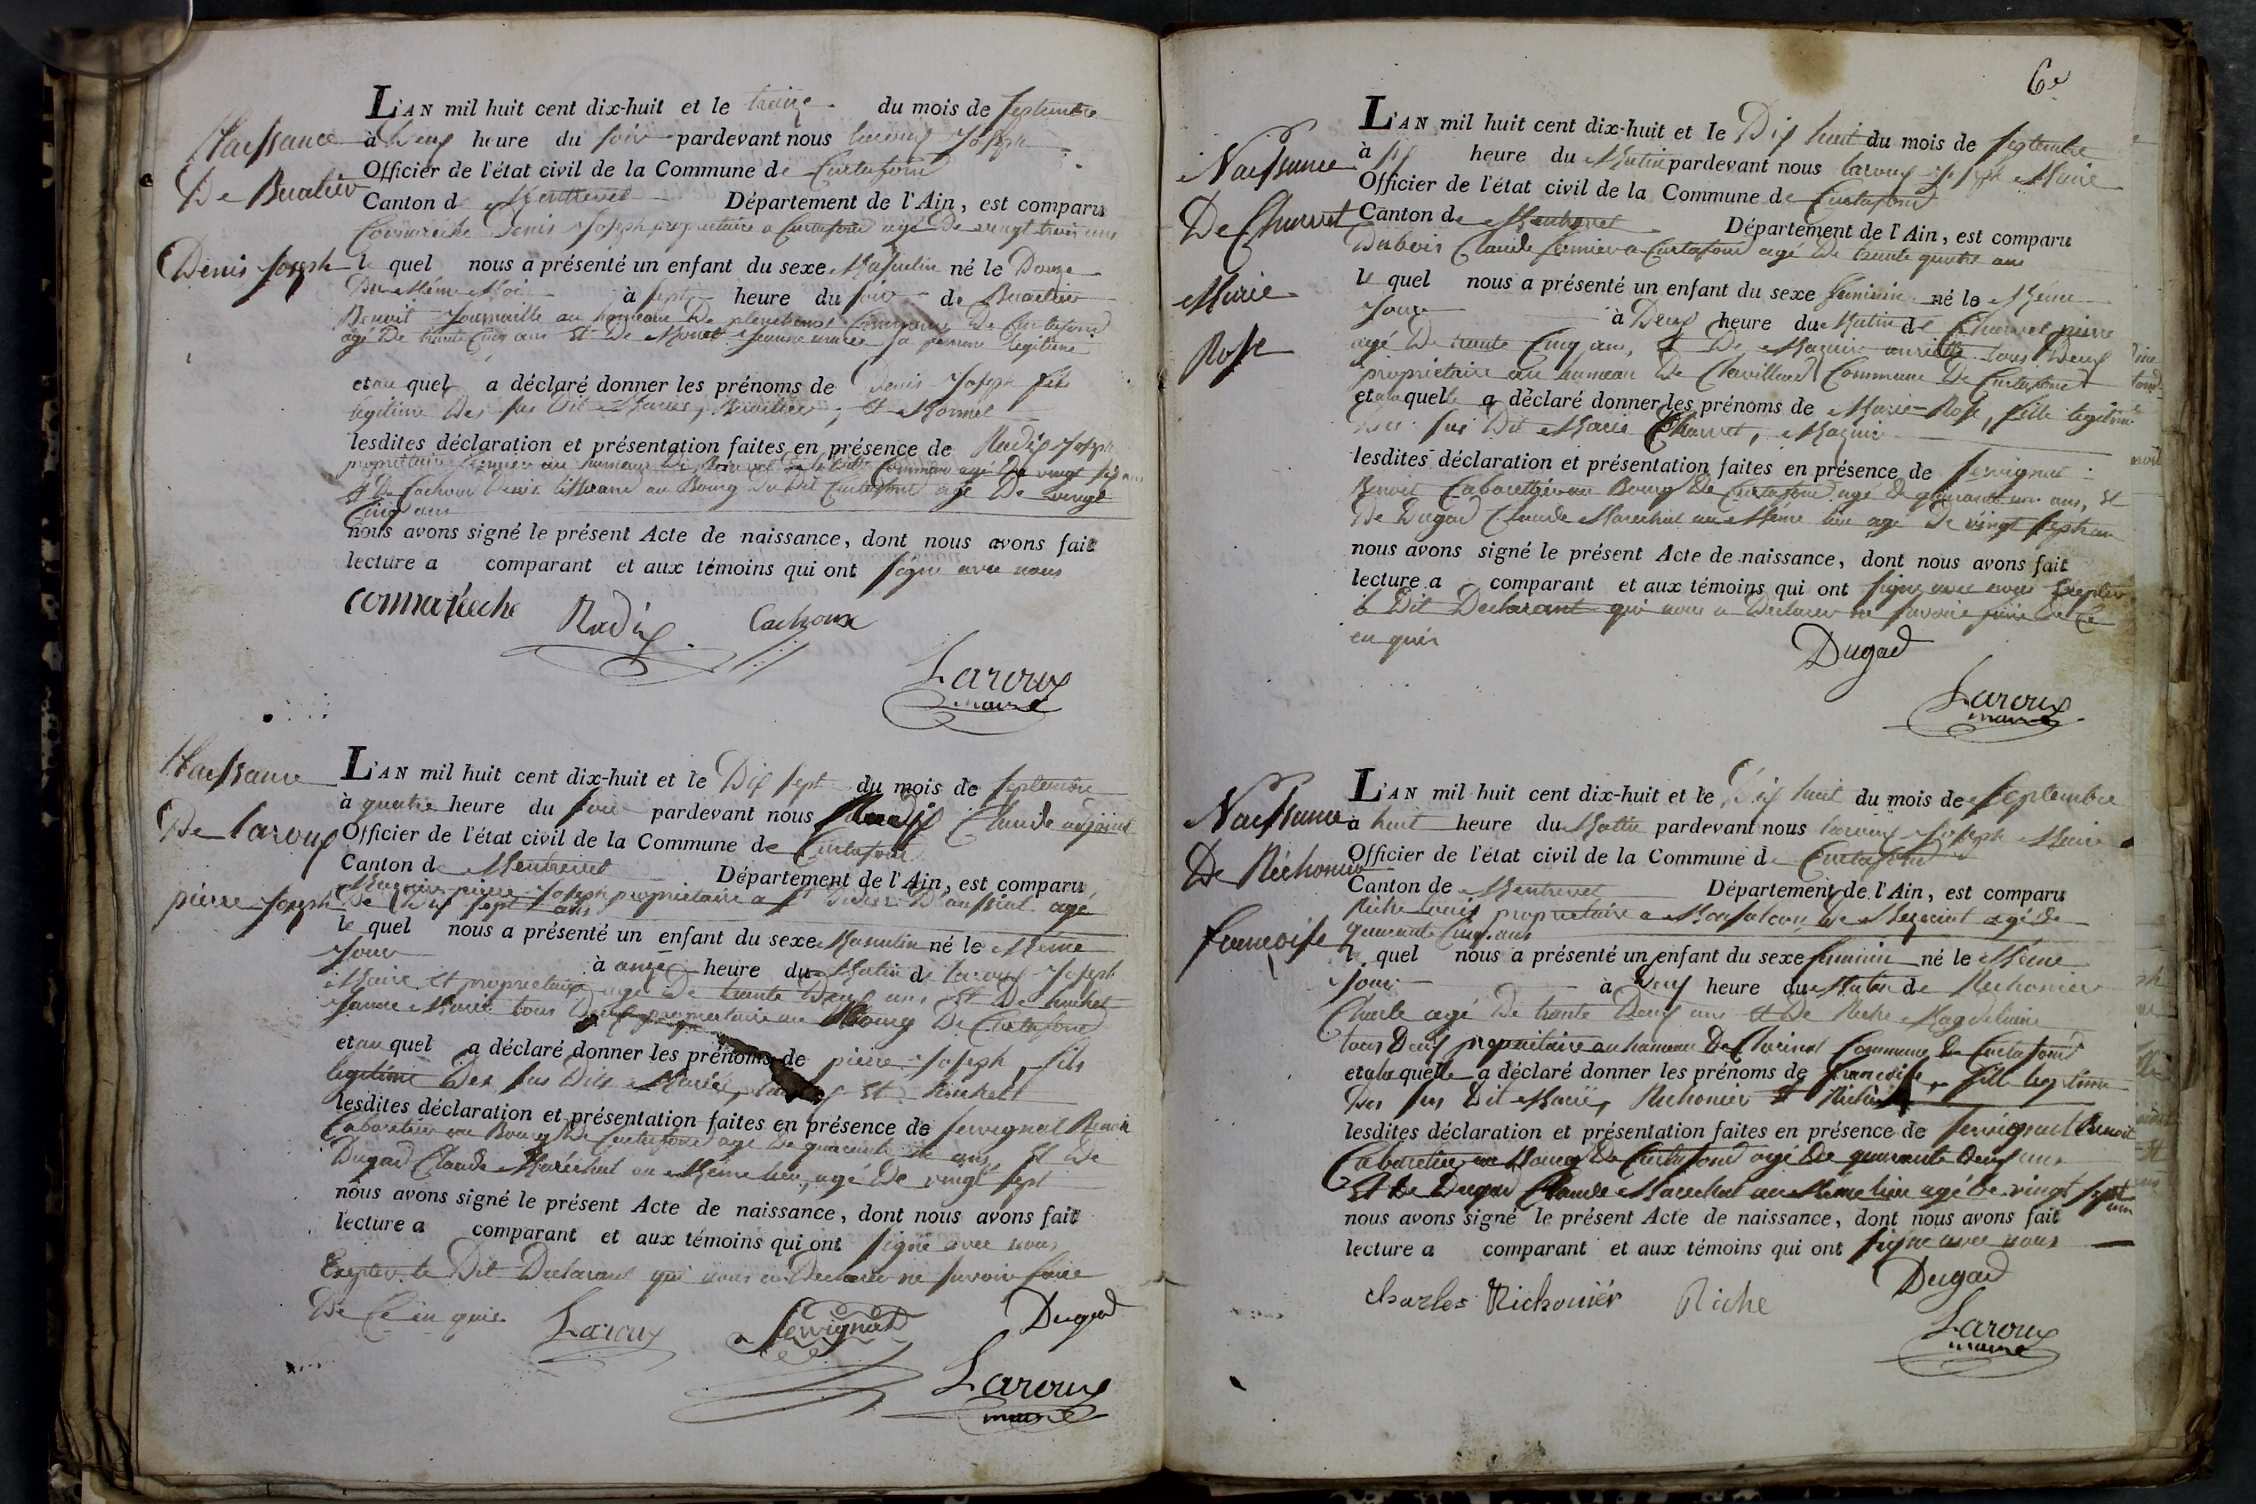 Naissance
De Buatier
Denis Joseph
L'AN mil huit cent dix-huit et le treize du mois de Septembre
à Deux heure du Soir pardevant nous Laroux Joseph
Officier de l'état civil de la Commune de Curtafond
Canton de Montrevel Département de l'Ain, est comparu
Denis Joseph propriétaire a Curtafond agé De vingt trois ans
le quel nous a présenté un enfant du sexe Masculin né le Douze
Du Même Mois à Sept heure du Soir de Buatier
Benoit au hameau De Commune De Curtafond
agé De trente Cinq ans Et De Monet sa femme legitime
et au quel a déclaré donner les prénoms de Denis Joseph fils
legitime Des sus Dit Mariés, Buatier, Et
lesdites déclaration et présentation faites en présence de Radix Joseph
propriétaire au hameau De Commune agé De vingt
Et De Cachoux Denis au Bourg Du Dit Curtafond agé De vingt
Cinq ans
nous avons signé le présent Acte de naissance, dont nous avons fait
lecture a comparant et aux témoins qui ont signé avec nous
Radix Cachoux
Laroux
maire
Naissance
De Laroux
pierre Joseph
L'AN mil huit cent dix-huit et le Dix Sept du mois de Septembre
à quatre heure du Soir pardevant nous Claude adjoint
Officier de l'état civil de la Commune de Curtafond
Canton de Montrevel Département de l'Ain, est comparu
pierre Joseph propriétaire a St Didier D'aussiat agé
De Dix Sept ans
le quel nous a présenté un enfant du sexe Masculin né le Même
Jour à onze heure du Matin de Laroux Joseph
Maire et propriétaire agé De trente Deux ans Et De
Jeanne Marie tous Deux propriétaire au Bourg De Curtafond
et au quel a déclaré donner les prénoms de pierre Joseph, fils
legitime Des sus Dits Mariés, Laroux Et
lesdites déclaration et présentation faites en présence de Servignat Benoit
Cabaretier au Bourg De Curtafond agé De quarante ans Et De
Dugad Claude Maréchal au Même lieu, agé De vingt Sept
nous avons signé le présent Acte de naissance, dont nous avons fait
lecture a comparant et aux témoins qui ont signé avec nous
Excepter le Dit Declarant qui nous a Declarer ne savoir faire
De Ce en quis
Laroux Servignat Dugad
Laroux
maire
6e
Naissance
De Charvet
Marie
Rose
L'AN mil huit cent dix-huit et le Dix huit du mois de Septembre
à six heure du Matin pardevant nous Laroux Joseph Maire
Officier de l'état civil de la Commune de Curtafond
Canton de Montrevel Département de l'Ain, est comparu
Dubois Claude fermier a Curtafond agé De trente quatre ans
le quel nous a présenté un enfant du sexe feminin né le Même
Jour à Deux heure du Matin de Charvet pierre
agé De trente Cinq ans, Et De tous Deux
propriétaire au hameau De Commune De Curtafond
et a la quelle a déclaré donner les prénoms de Marie-Rose, fille legitime
Des sus Dit Mariés Charvet,
lesdites déclaration et présentation faites en présence de Servignat
Benoit Cabarettier au Bourg De Curtafond agé De quarante un ans, Et
De Dugad Claude Marechal au Même lieu agé De vingt Sept an
nous avons signé le présent Acte de naissance, dont nous avons fait
lecture a comparant et aux témoins qui ont signé avec nous Excepter
le Dit Declarant qui nous a Declarer ne savoir faire De Ce
en quis
Dugad
Laroux
maire
Naissance
De Réchonier
francoise
L'AN mil huit cent dix-huit et le Dix huit du mois de Septembre
à huit heure du Matin pardevant nous Laroux Joseph Maire
Officier de l'état civil de la Commune de Curtafond
Canton de Montrevel Département de l'Ain, est comparu
Riche Louis propriétaire a Monfalcon, de Mezeriat agé De
quarante Cinq ans
le quel nous a présenté un enfant du sexe feminin né le Même
Jour à Deux heure du Matin de Richonier
Charle agé De trente Deux ans Et De Riche Magdelaine
tous Deux propriétaire au hameau De Commune De Curtafond
et a la quelle a déclaré donner les prénoms de francoise, fille legitime
Des sus Dit Mariés, Richonier Et Riche
lesdites déclaration et présentation faites en présence de Servignat Benoit
Cabaretier au Bourg De Curtafond agé De quarante Deux ans
Et De Dugad Claude Marechal au Même lieu agé De vingt Sept
ans
nous avons signé le présent Acte de naissance, dont nous avons fait
lecture a comparant et aux témoins qui ont signé avec nous
Dugad
charles Richonier Riche
Laroux
maire